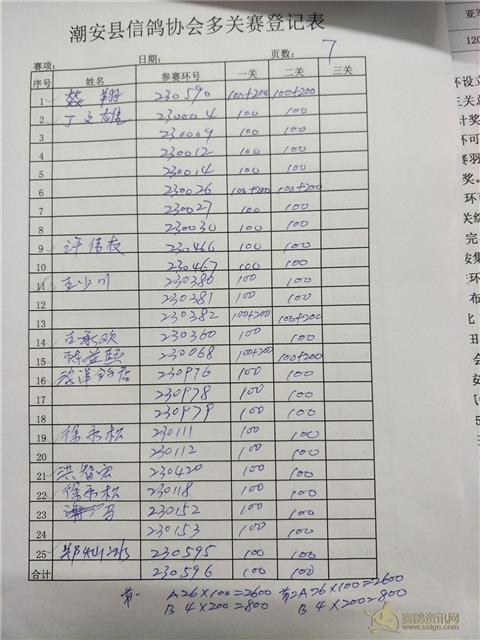 潮安县信鸽协会多关赛登记表
赛项： 日期： 页数： 7
序号 姓名 参赛环号 一关 二关 三关
1 蔡翔 230590 100+200 100+200
2 丁文雄 230004 100 100
3 230009 100 100
4 230012 100 100
5 230014 100 100
6 230026 100+200 100+200
7 230027 100 100
8 230030 100 100
9 许伟枝 230466 100 100
10 230467 100 100
11 王少川 230380 100 100
12 230381 100 100
13 230382 100+200 100+200
14 王承欢 230360 100 100
15 陈益熙 230068 100+200 100+200
16 230976 100 100
17 230978 100 100
18 230979 100 100
19 徐永松 230111 100 100
20 230112 100 100
21 洪智宏 230420 100 100
22 徐永松 230118 100 100
23 230152 100 100
24 230153 100 100
25 230595 100 100
合计 230596 100 100
第一 A26×100=2600 第二A26×100=2600
B 4×200=800 B 4×200=800
亚军
120
不设立
三关总
计奖
环可
赛羽
奖。
环
关综
完
按集
布
比
丑
会
赛鸽资讯网
www.saige.com